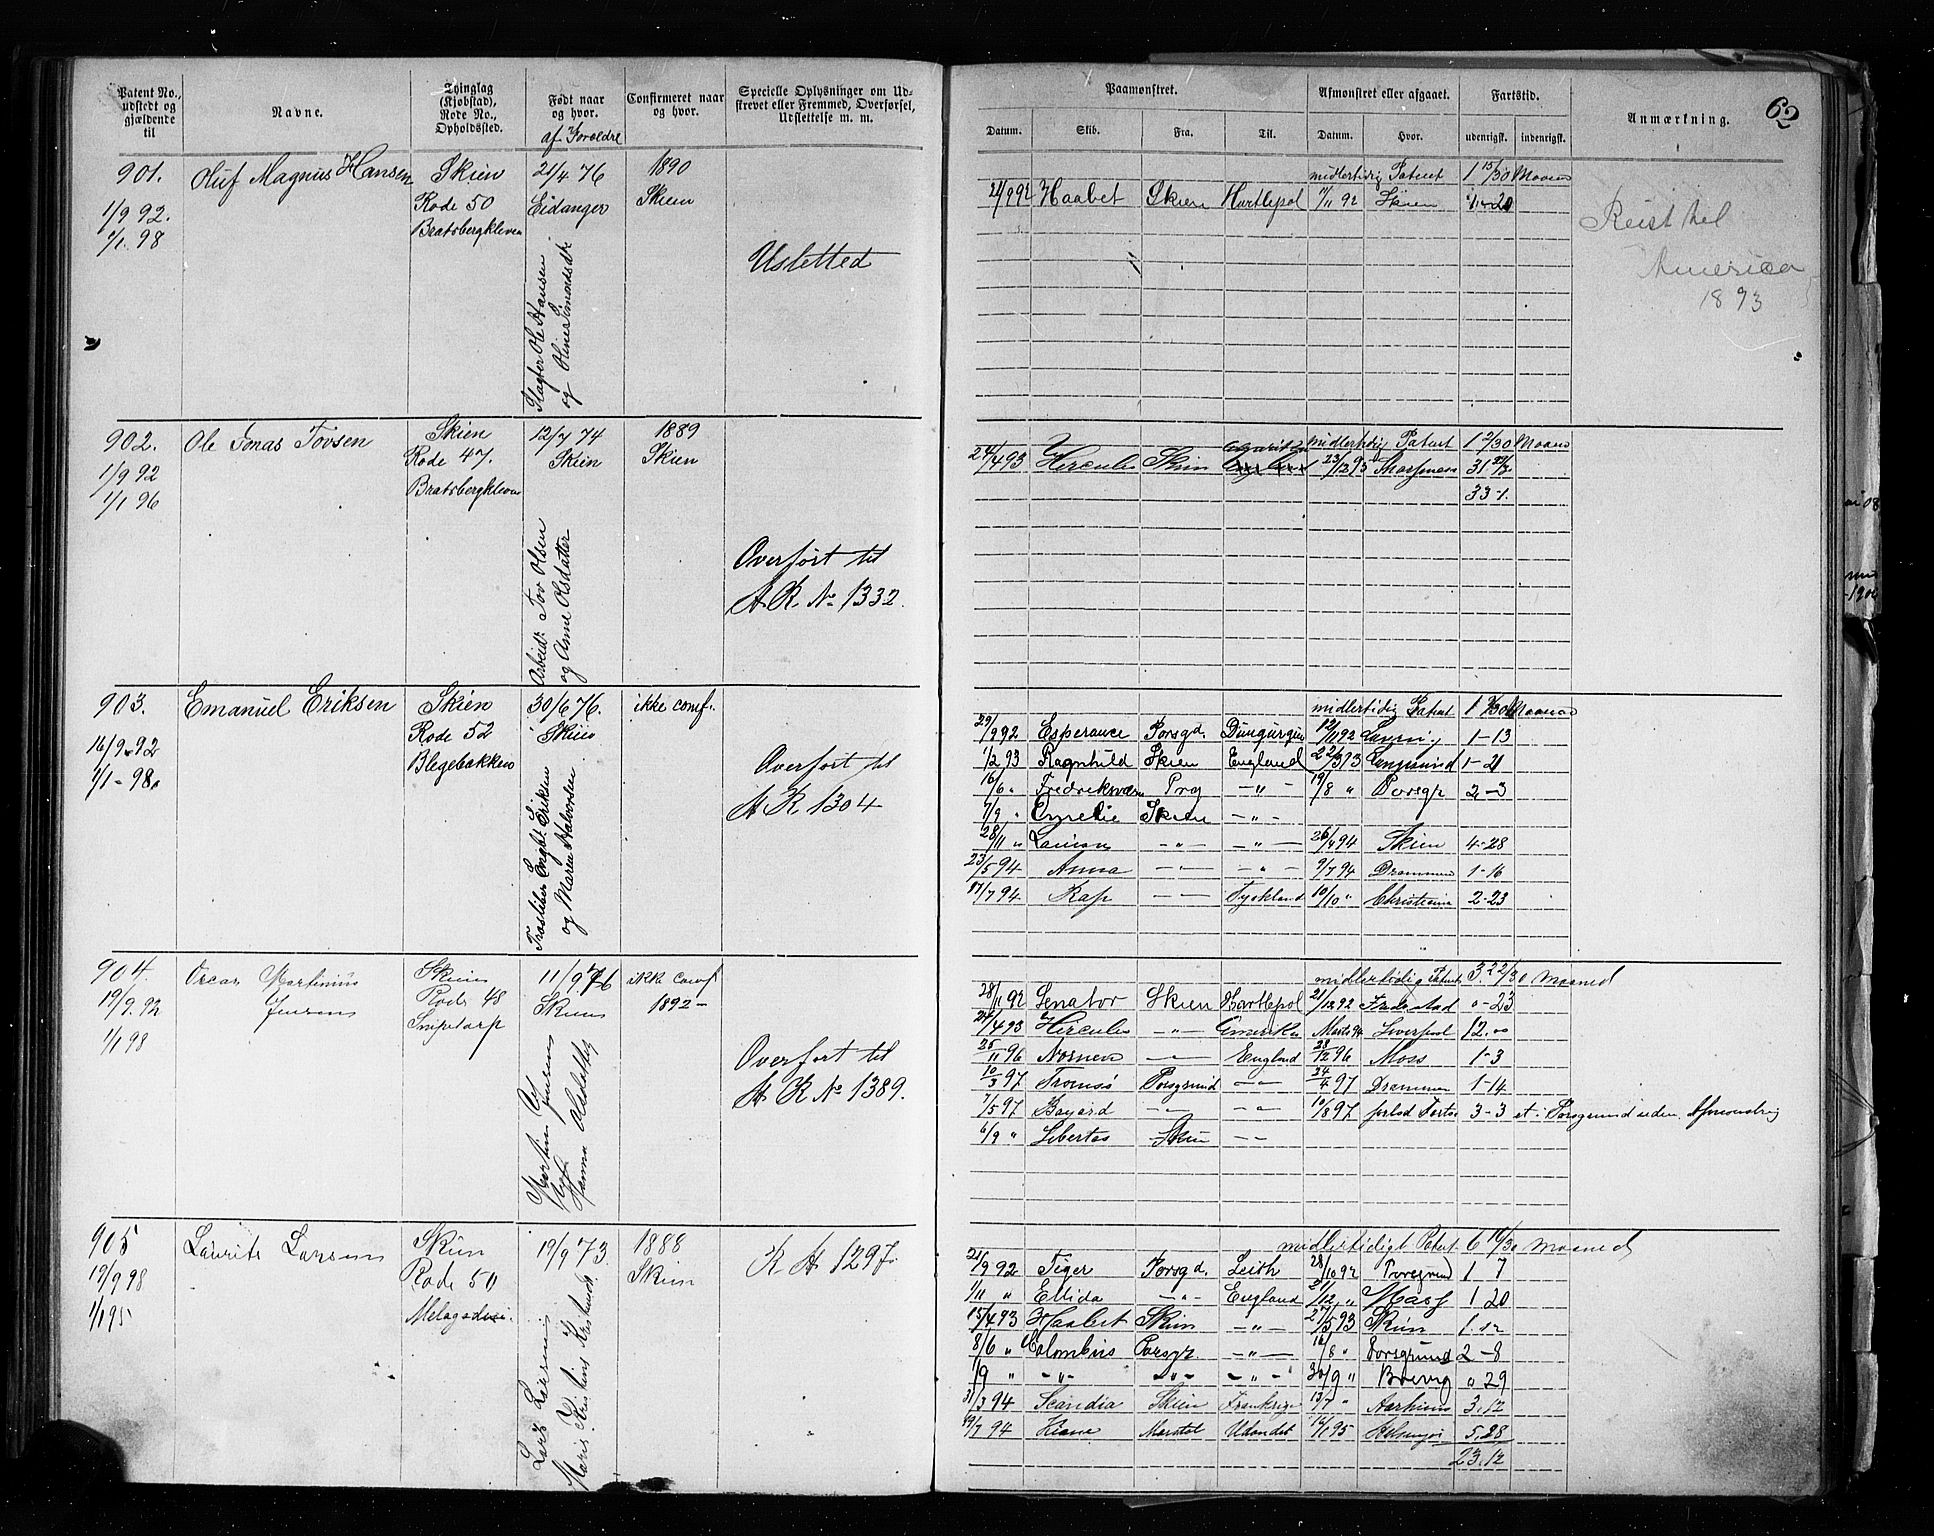 Patent No., udstedt og gjældende til
Navne.
Thinglag (Kjøbstad), Rode No., Opholdssted.
Født naar og hvor.
af Forældre
Confirmeret naar og hvor.
Specielle Oplysninger om Udskrevet eller Fremmed, Overførsel, Udslettelse m. m.
Paamønstret.
Afmønstret eller afgaaet.
Fartstid.
Anmærkning.
62
Datum.
Skib.
Fra.
Til.
Datum.
Hvor.
udenrigsk.
indenrigsk.
901.
1/9 92.
1/1. 98
Oluf Magnus Hansen
Skien
Rode 50
Bratsbergkleven
21/4 76
Eidanger
Slagter Ole Hansen
og Oline Simonsdtr
1890
Skien
Usletted
midlertidig Patent 1 15/30 Maaned
21/9 92 Haabet Skien Hartlepol 11/11 92 Skien 1-20
Reist til
America
1893
902.
1/9 92
1/1 96
Ole Jonas Tovsen
Skien
Rode 47.
Bratsbergkleven
12/7 74
Skien
Arbeidr Tov Olsen
og Anne Olsdatter
1889
Skien
Overført til
A R. No 1332.
midlertidig Patent 1 2/30 Maaned
24/4 93 Hercules Skien 23/12 93
33-1.
903.
16/9 92
1/1-98.
Emanuel Eriksen
Skien
Rode 52
Blegebakken
30/6 76.
Skien
og Maren Halvorsen
ikke comf.
Overført til
A R 1304
midlertidig Patent 1 Maaned
29/9 92 Esperance Porsgd. 12/11 92 1-13
1/2 93 Ragnhild Skien England 22/3 93 1-21
16/6 " Fredriksværn Prg -"- 19/8 " Porsgr 2-3
7/9 " Emelie Skien -"-
28/11 " -"- -"- 26/4 94 Skien 4-28
23/5 94 Anna -"- -"- 9/7 94 Drammen 1-16
17/7 94 Kap -"- Tyskland 10/10 " Christiania 2-23
904.
19/9. 92
1/1 98
Oscar Martinius
Jensen
Skien
Rode 48
Snipetorp
11/9 76
Skien
ikke comf
1892-
Overført til
A R No 1389.
midlertidig Patent 3 22/30 Maaned
28/11 92 Senator Skien Hartlepol 21/12 92 Fredrikstad 0-23
24/4 93 Hercules -"- Amerika Marts 94 Liverpool 12.00
25/11 96 Nornen -"- England 28/12 96 Moss 1-3
10/3 97 Tromsø Porsgrund -"- 24/4 97 Drammen 1-14
7/5 97 Bayard -"- -"- 10/8 97 forlod Fartøiet i Porsgrund uden Afmønstring 3-3
6/9 " Libertas Skien -"-
905
19/9 98
1/1 95
Laurits Larsen
Skien
Rode 50
Melagsdvei.
19/9 73.
Lars Larsen
1888
Skien
R A 1297.
midlertidigt Patent 6 10/30 Maaned
21/9 92 Tiger Porsgd. Leith 28/10 92 Porsgrund 1 7
1/11 " Ellida -"- England 21/12 " Moss 1 20
15/4 93 Haabet Skien -"- 27/5 93 Skien 1.12
8/6 " Colombus Porsgr. -"- 16/8 " Porsgrund 2-8
1/9 " -"- -"- -"- 30/9 " Brevig " 29
31/3 94 Scandia Skien Frankrige 13/7 " Aarhuus 3.12
19/7 94 Marstal Udandet 16/1 95 Helsingør 5.28
23.12